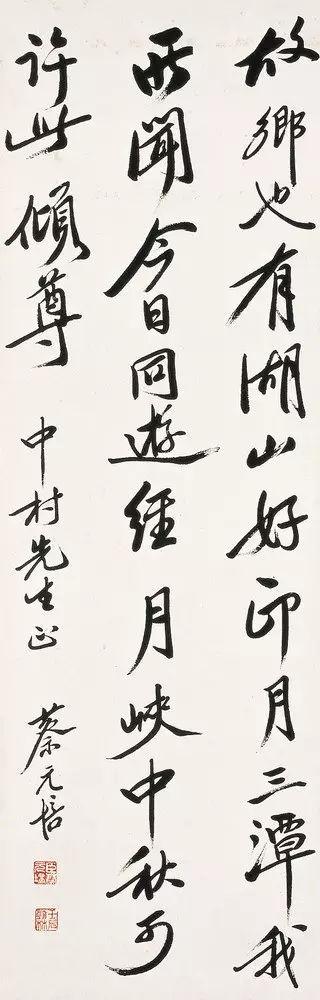 故鄉也有湖山好印月三潭我
所聞今日同遊經月峽中秋可
許此傾尊
中村先生正 蔡元培